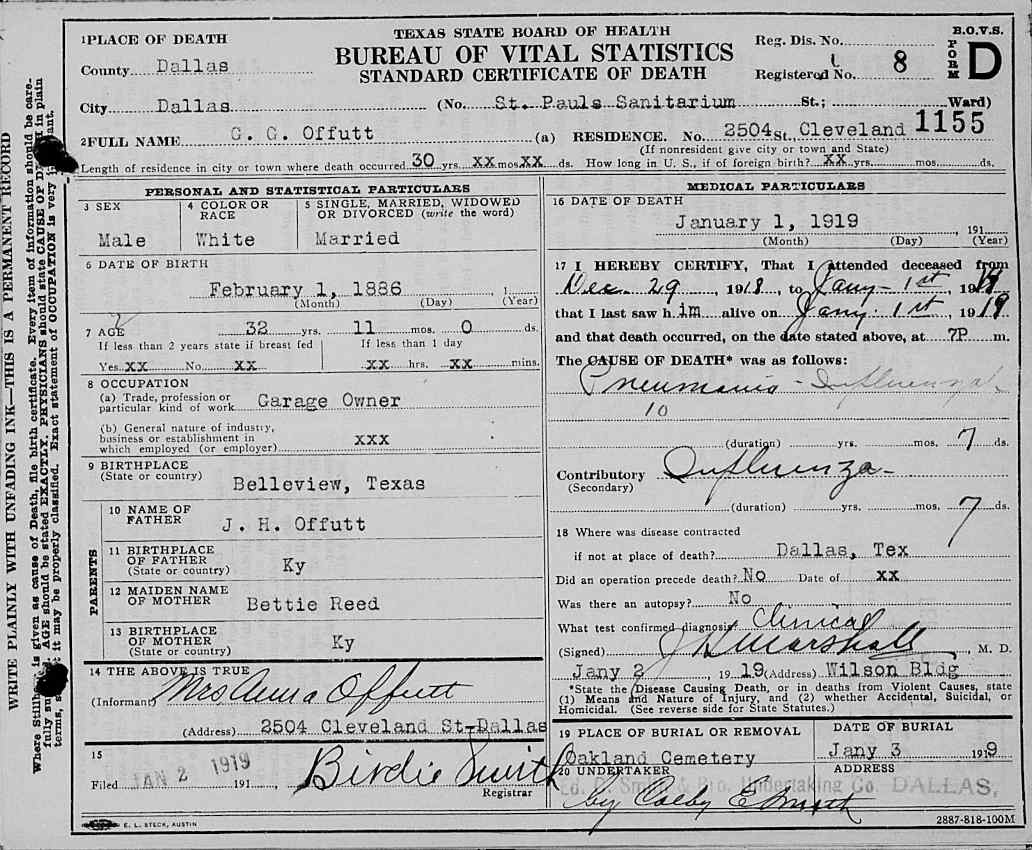 TEXAS STATE BOARD OF HEALTH
BUREAU OF VITAL STATISTICS
STANDARD CERTIFICATE OF DEATH
B.O.V.S.
FORM D
1 PLACE OF DEATH
County Dallas
Reg. Dis. No.
Registered No. 8
City Dallas (No. St. Pauls Sanitarium St.; Ward)
2 FULL NAME G. G. Offutt (a) RESIDENCE. No. 2504 St. Cleveland 1155
(If nonresident give city or town and State)
Length of residence in city or town where death occurred 30 yrs. XX mos. XX ds. How long in U. S., if of foreign birth? XX yrs. mos. ds.
PERSONAL AND STATISTICAL PARTICULARS
3 SEX
Male
4 COLOR OR RACE
White
5 SINGLE, MARRIED, WIDOWED OR DIVORCED (write the word)
Married
6 DATE OF BIRTH
February 1, 1886 1
(Month) (Day) (Year)
7 AGE 32 yrs. 11 mos. 0 ds.
If less than 2 years state if breast fed If less than 1 day
Yes XX No XX XX hrs. XX mins.
8 OCCUPATION
(a) Trade, profession or particular kind of work Garage Owner
(b) General nature of industry, business or establishment in which employed (or employer) XXX
9 BIRTHPLACE
(State or country) Belleview, Texas
PARENTS
10 NAME OF FATHER J. H. Offutt
11 BIRTHPLACE OF FATHER
(State or country) Ky
12 MAIDEN NAME OF MOTHER Bettie Reed
13 BIRTHPLACE OF MOTHER
(State or country) Ky
14 THE ABOVE IS TRUE
(Informant) Mrs Anna Offutt
(Address) 2504 Cleveland St-Dallas
15
Filed JAN 2 1919 191 , Birdie Smith
Registrar
MEDICAL PARTICULARS
16 DATE OF DEATH
January 1, 1919 , 191
(Month) (Day) (Year)
17 I HEREBY CERTIFY, That I attended deceased from
Dec. 29 , 1918, to Jany - 1st , 19
that I last saw him alive on Jany. 1st , 1919
and that death occurred, on the date stated above, at 7P m.
The CAUSE OF DEATH* was as follows:
Pneumonia - Influenzal
10
(duration) yrs. mos. 7 ds.
Contributory Influenza
(Secondary)
(duration) yrs. mos. 7 ds.
18 Where was disease contracted
if not at place of death? Dallas, Tex
Did an operation precede death? No Date of XX
Was there an autopsy? No
What test confirmed diagnosis Clinical
(Signed) Marshall , M. D.
Jany 2 , 19 19 (Address) Wilson Bldg
*State the Disease Causing Death, or in deaths from Violent Causes, state
(1) Means and Nature of Injury, and (2) Whether Accidental, Suicidal, or
Homicidal. (See reverse side for State Statutes.)
19 PLACE OF BURIAL OR REMOVAL
Oakland Cemetery
DATE OF BURIAL
Jany 3 1919
20 UNDERTAKER
ADDRESS
Smith & Bro. Undertaking Co. DALLAS,
by Colby E Smith
E. L. STECK, AUSTIN
2887-818-100M
WRITE PLAINLY WITH UNFADING INK—THIS IS A PERMANENT RECORD
is given as cause of Death, file birth certificate. Every item of information should be care-
AGE should be stated EXACTLY. PHYSICIANS should state CAUSE OF in plain
it may be properly classified. Exact statement of OCCUPATION is very